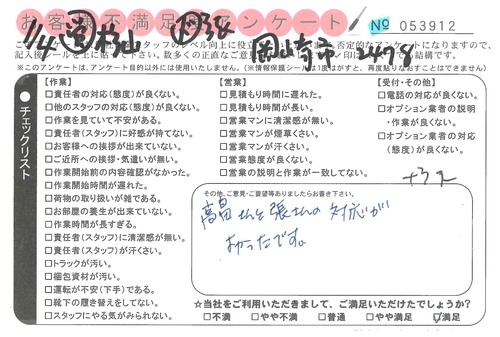 お客様不満足度アンケート
No 053912
1/4 岡崎市 2498
記入後シールを上に貼って下さい。
(※このアンケートは、アンケート目的以外には使用いたしません。)(※情報保護シールは1度はがすと、再度貼りなおすことはできません)
チェックリスト
【作業】
□責任者の対応(態度)が良くない。
□他のスタッフの対応(態度)が良くない。
□作業を見ていて不安がある。
□責任者(スタッフ)に好感が持てない。
□お客様への挨拶が出来ていない。
□ご近所への挨拶・気遣いが無い。
□作業開始前の内容確認がなかった。
□作業開始時間が遅れた。
□荷物の取り扱いが雑である。
□お部屋の養生が出来ていない。
□作業時間が長すぎる。
□責任者(スタッフ)に清潔感が無い。
□責任者(スタッフ)が汗くさい。
□トラックが汚い。
□梱包資材が汚い。
□運転が不安(下手)である。
□靴下の履き替えをしてない。
□スタッフにやる気がみられない。
【営業】
□見積もり時間に遅れた。
□見積もり時間が長い。
□営業マンに清潔感が無い。
□営業マンが煙草くさい。
□営業マンが汗くさい。
□営業態度が良くない。
□営業の説明と作業が一致してない。
【受付・その他】
□電話の対応が良くない。
□オプション業者の説明
・作業が良くない。
□オプション業者の対応
(態度)が良くない。
その他、ご意見・ご要望等ありましたらお書き下さい。
高畠さんと張さんの対応が
よかったです。
☆当社をご利用いただきまして、ご満足いただけたでしょうか?
□不満 □やや不満 □普通 □やや満足 ☑満足